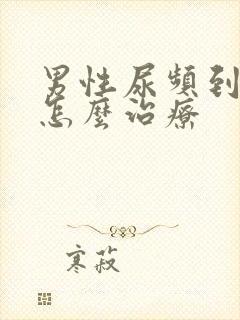 男性尿頻到
怎麼治療
寒菽